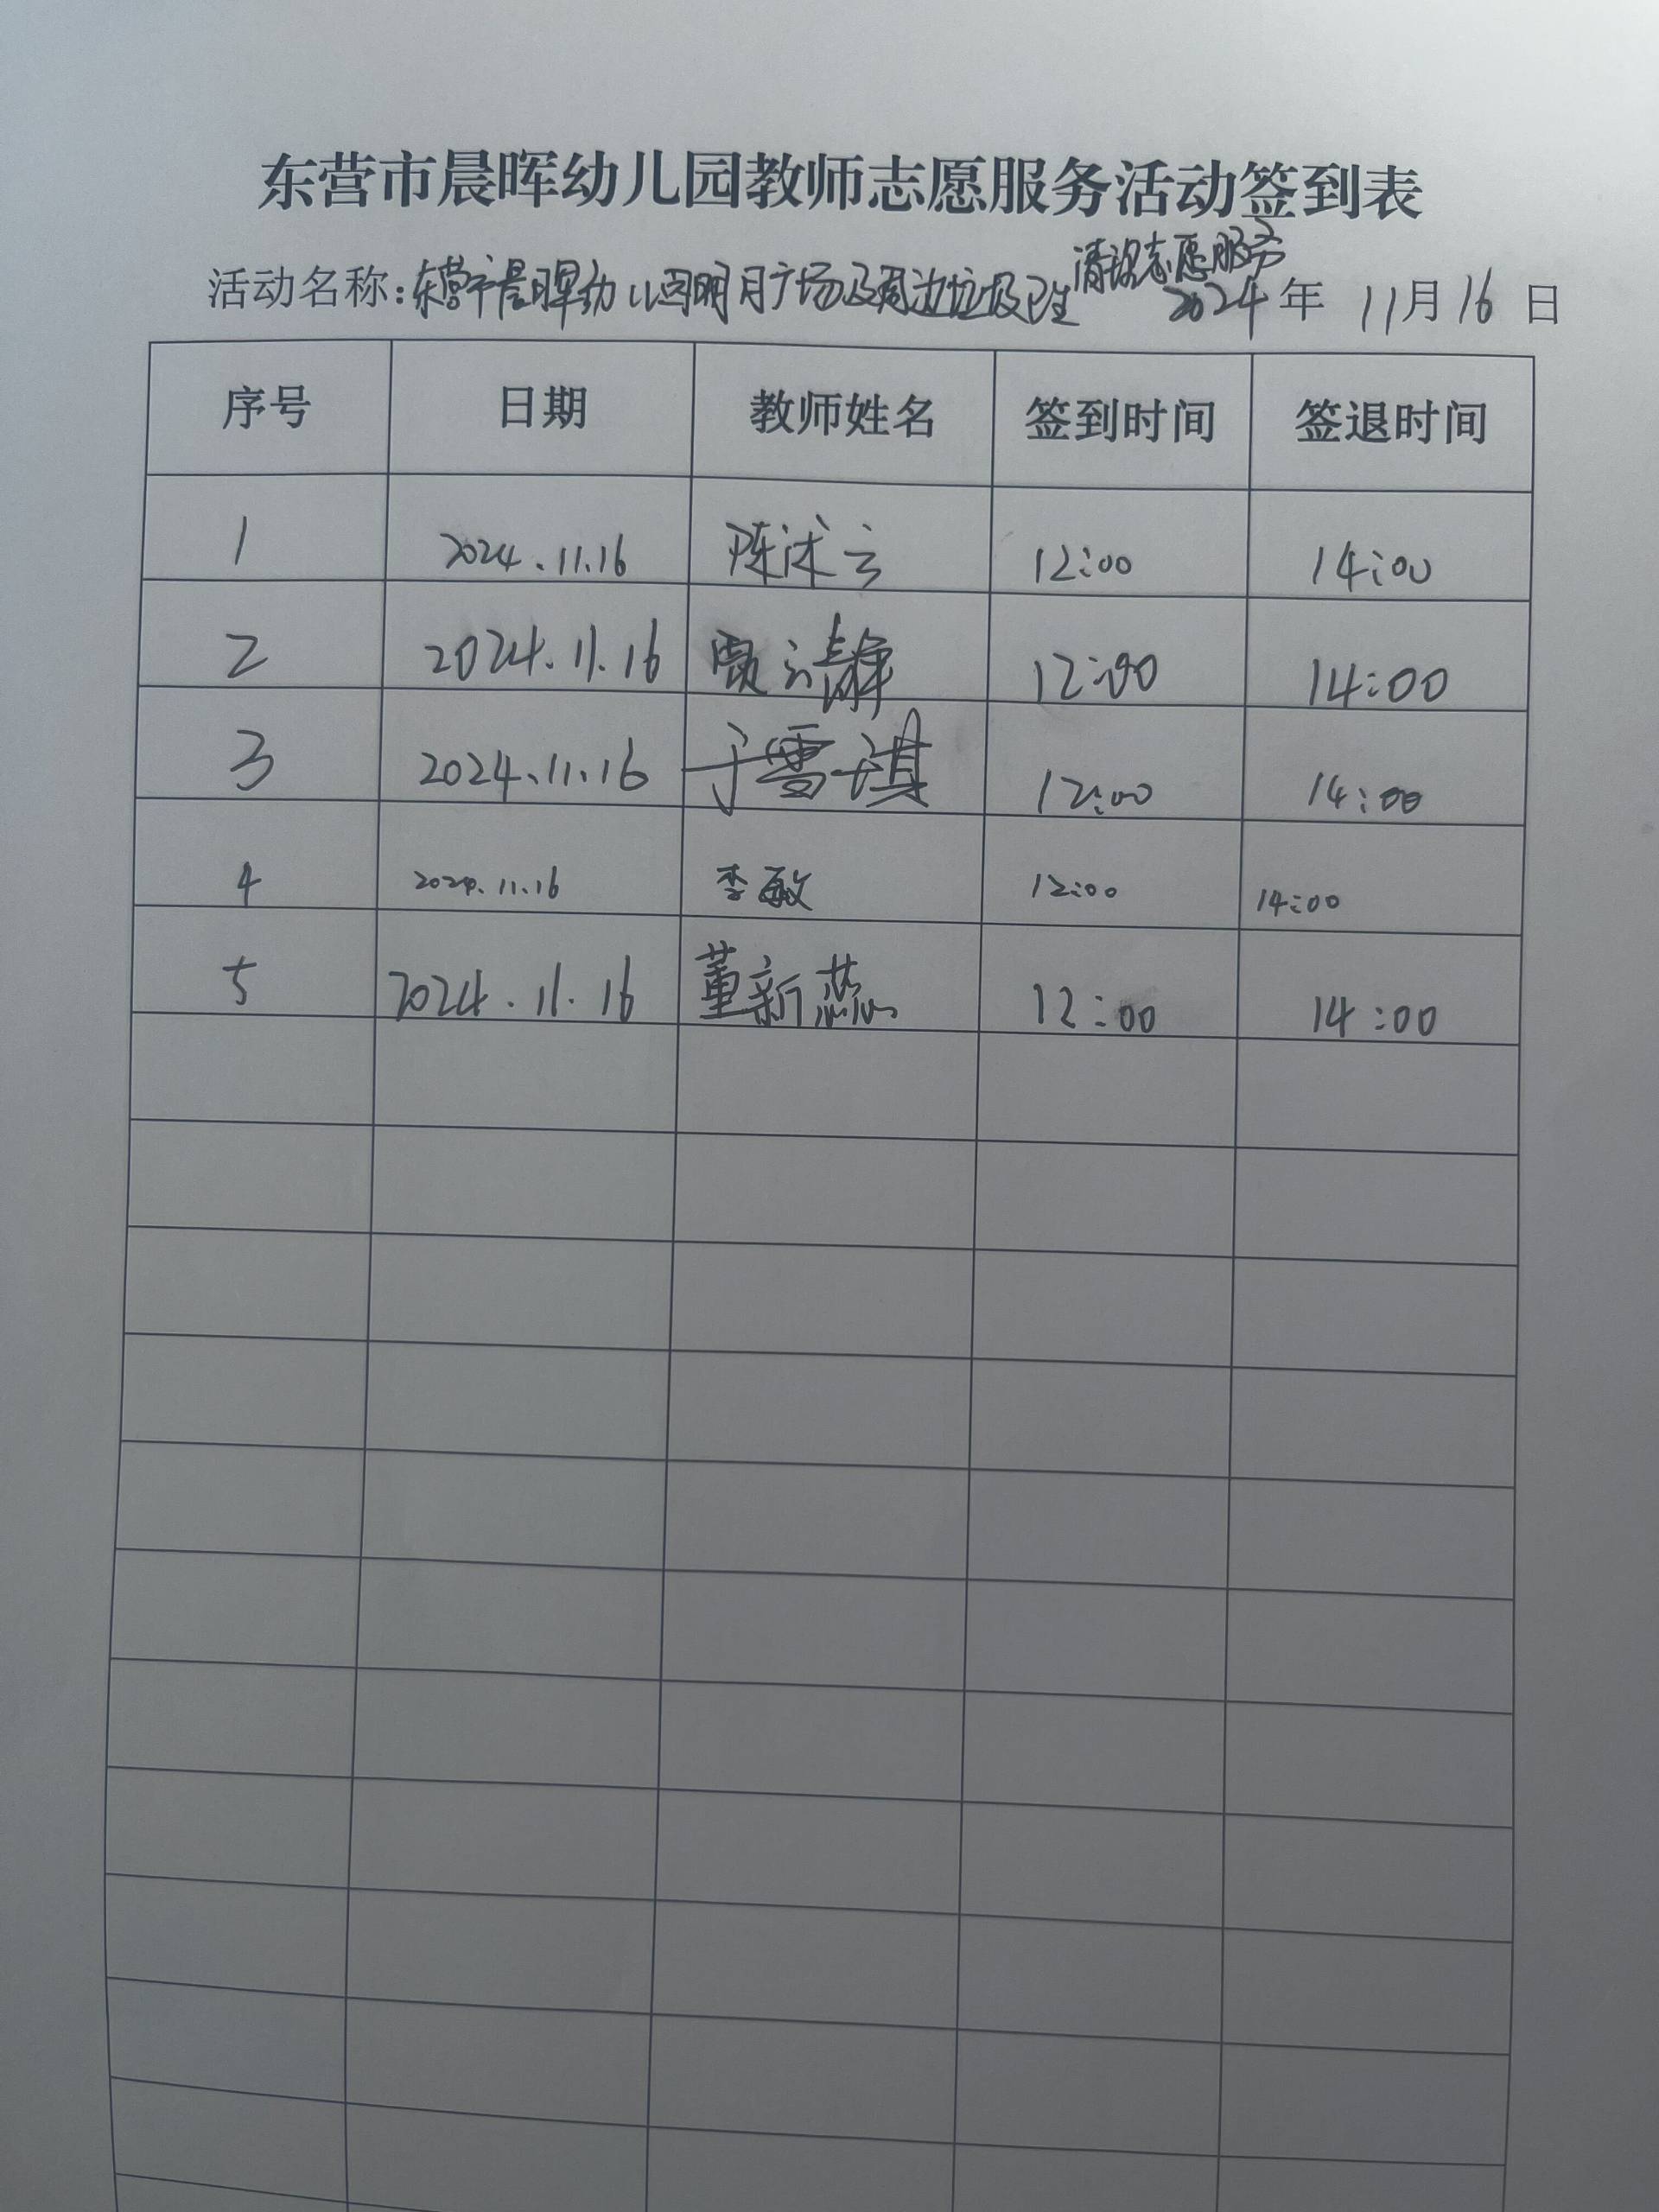 东营市晨晖幼儿园教师志愿服务活动签到表
清理志愿服务
活动名称:东营市晨晖幼儿园明月广场及周边垃圾卫生 2024年 11月16日
序号 日期 教师姓名 签到时间 签退时间
1 2024.11.16 陈沭云 12:00 14:00
2 2024.11.16 贾云静 12:00 14:00
3 2024.11.16 于雪琪 12:00 14:00
4 2024.11.16 李敏 12:00 14:00
5 2024.11.16 董新燕 12:00 14:00